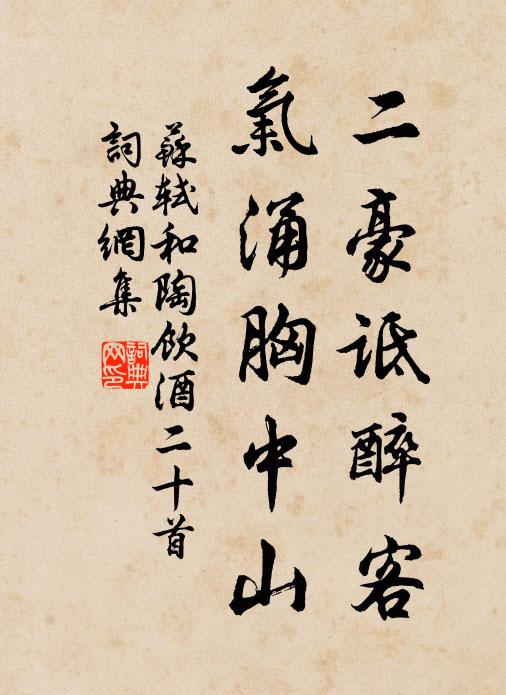 二豪诋醉客
氣涌胸中山
蘇軾和陶飲酒二十首
詞典網集
詞典網印